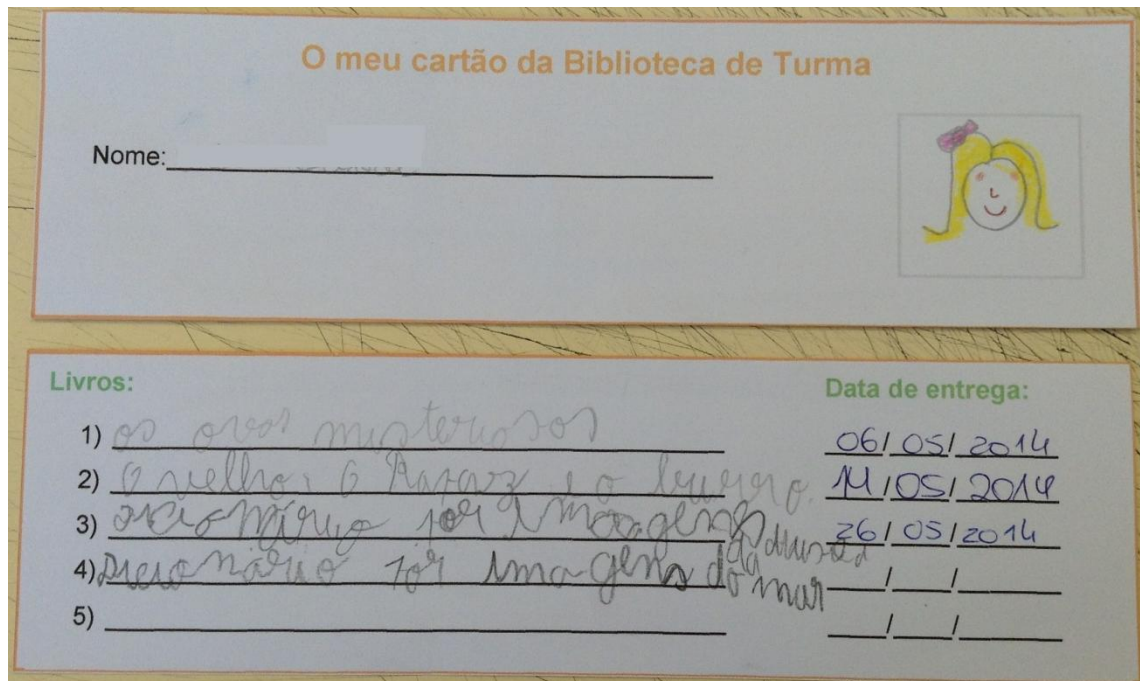 O meu cartão da Biblioteca de Turma
Nome:
Livros:
Data de entrega:
1) os ovos misteriosos 06/05/2014
2) O velho, O Rapaz e o burro. 14/05/2014
3) Dicionário por imagens da 26/05/2014
4) Dicionário por imagens do mar __/__/__
5) __/__/__